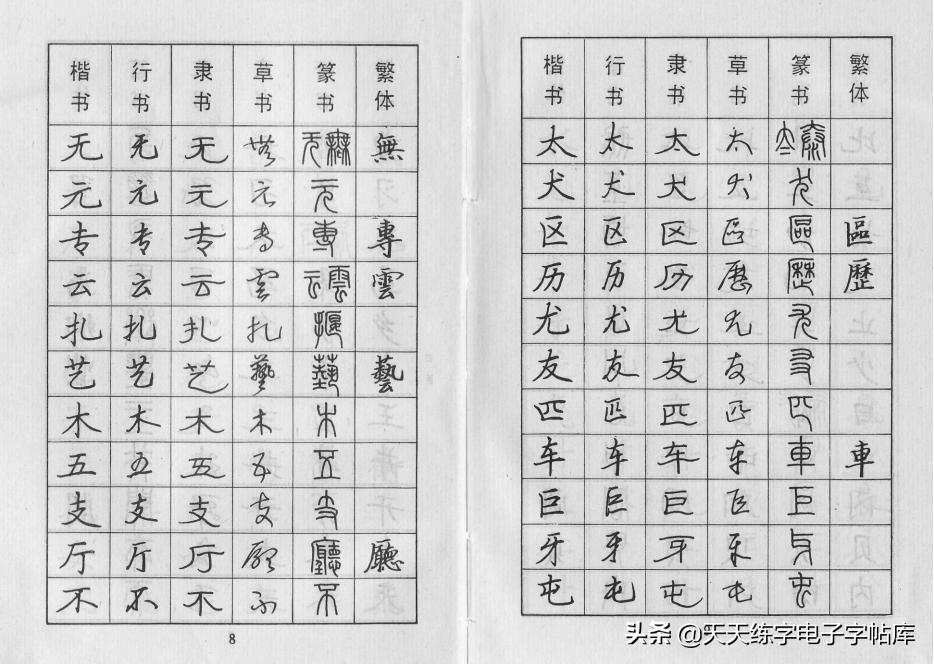 楷书 行书 隶书 草书 篆书 繁体
无 无 无 無 无無 無
元 元 元 元 元
专 专 专 专 專 專
云 云 云 雲 云雲 雲
扎 扎 扎 扎
艺 艺 艺 藝 藝 藝
木 木 木 木 木
五 五 五 五 五
支 支 支 支 支
厅 厅 厅 廳 廳
不 不 不 不 不
8
楷书 行书 隶书 草书 篆书 繁体
太 太 太 太 太泰
犬 犬 犬 犬 犬
区 区 区 區 區 區
历 历 历 歷 歷 歷
尤 尤 尤 尤 尤
友 友 友 友 友
匹 匹 匹 匹 匹
车 车 车 车 車 車
巨 巨 巨 巨 巨
牙 牙 牙 牙 牙
屯 屯 屯 屯 屯
头条 @天天练字电子字帖库